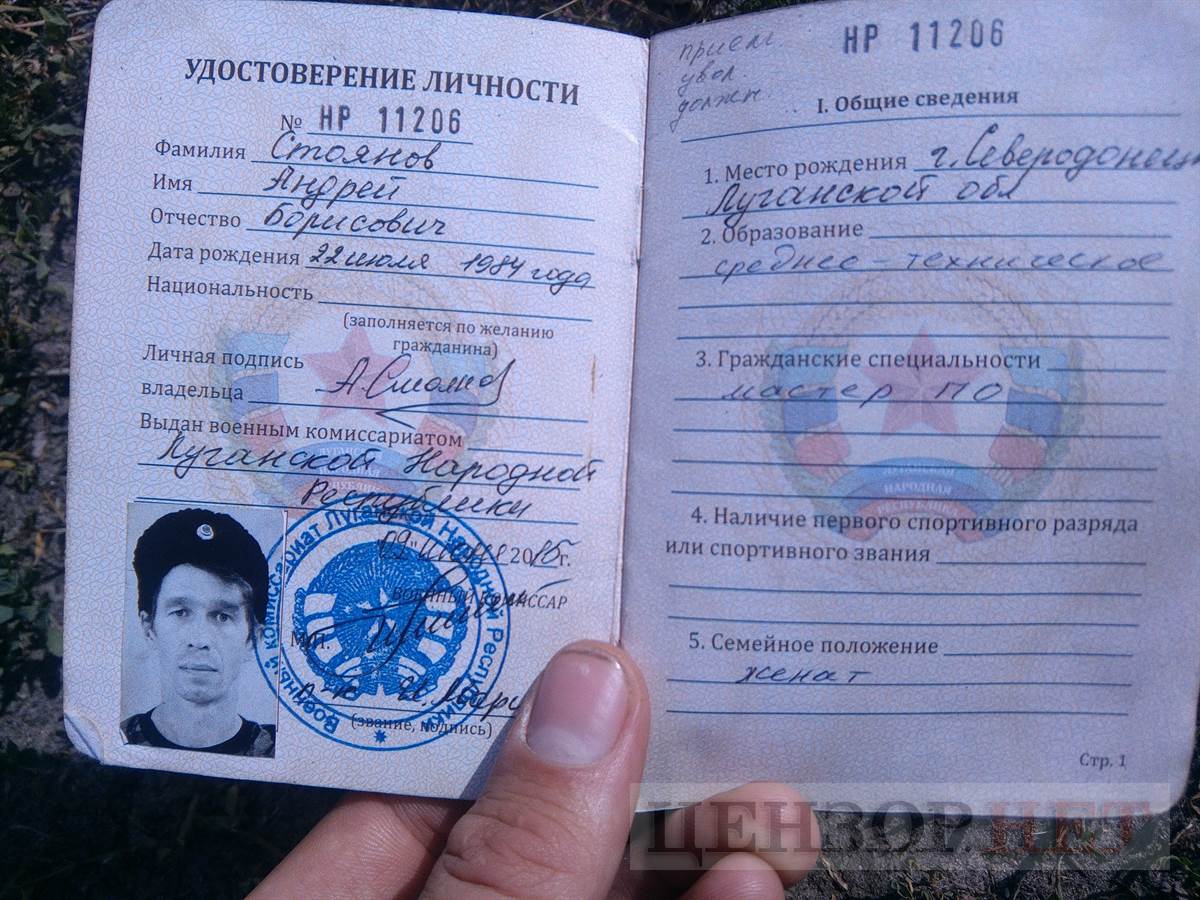 УДОСТОВЕРЕНИЕ ЛИЧНОСТИ
№ НР 11206
Фамилия Стоянов
Имя Андрей
Отчество Борисович
Дата рождения 22 июля 1984 года
Национальность
(заполняется по желанию
гражданина)
Личная подпись
владельца А.Стоянов
Выдан военным комиссариатом
Луганской Народной
Республики
2015г.
ВОЕННЫЙ КОМИССАР
М.П.
(звание, подпись)
Военный комиссариат Луганской Народной Республики
прием
увол.
должн.
НР 11206
I. Общие сведения
1. Место рождения г.Северодонецк
Луганской обл
2. Образование
средне-техническое
3. Гражданские специальности
мастер ПО
НАРОДНАЯ
РЕСПУБЛИКА
4. Наличие первого спортивного разряда
или спортивного звания
5. Семейное положение
женат
Стр. 1
ЦЕНЗОР.НЕТ